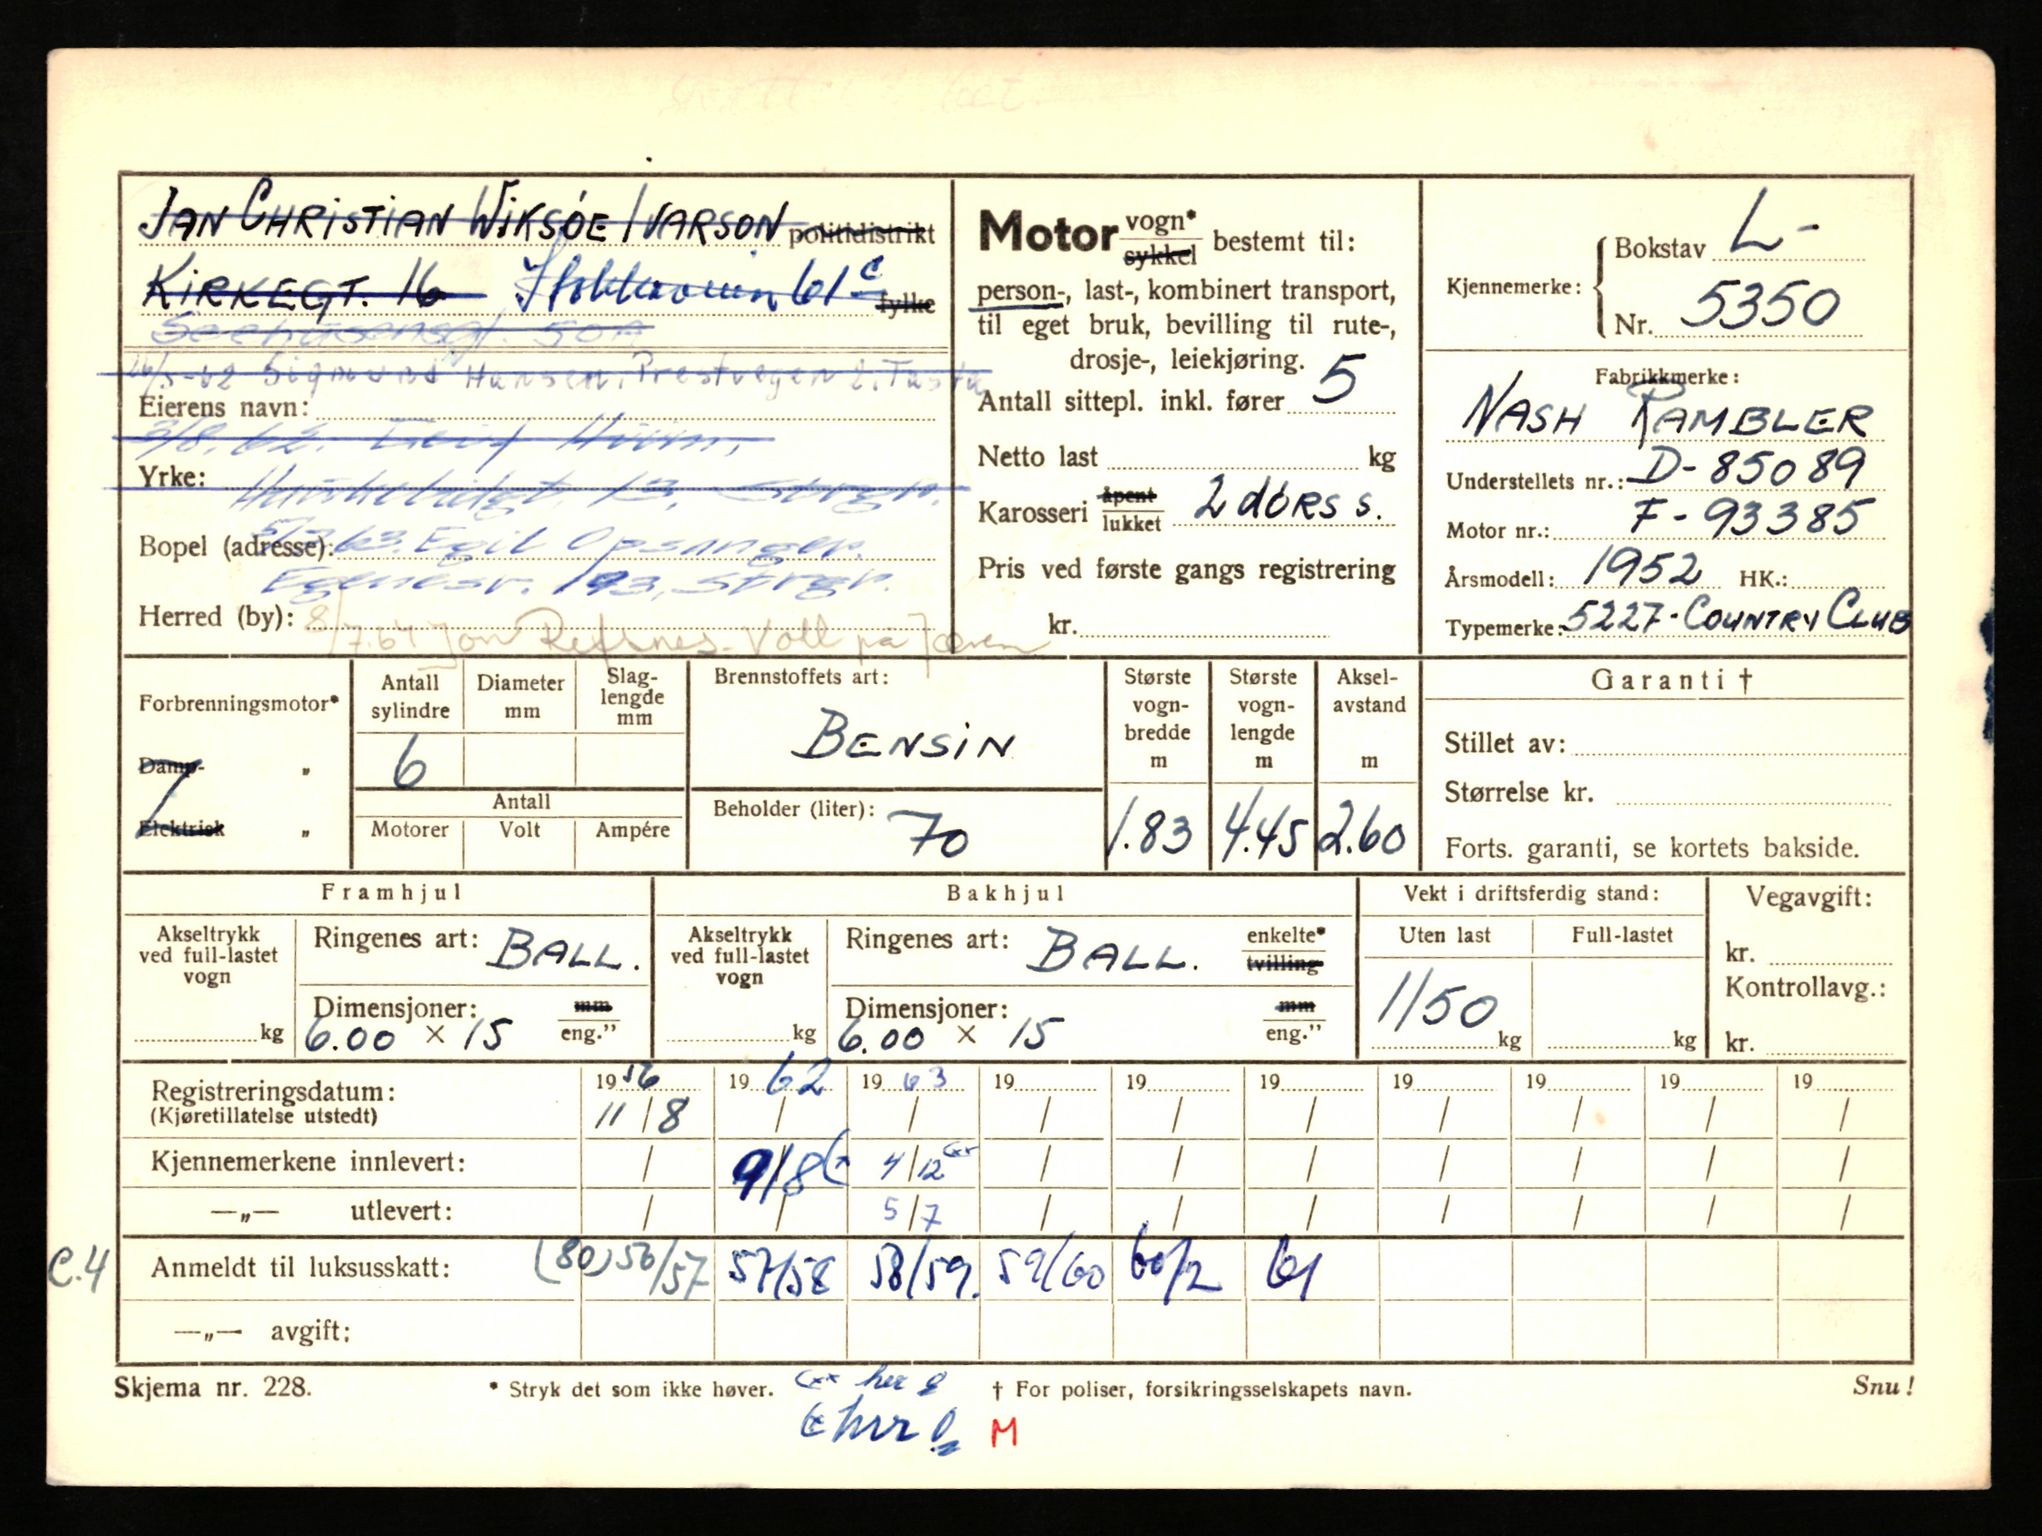 JAN CHRISTIAN WIKSØE IVARSON politidistrikt
KIRKEGT. 16 61 c fylke
50A
26/5-62 Sigmund Hansen, Prestvegen 2. Tasta
Eierens navn:
3/8.62.
Yrke: 13,
Bopel (adresse): 63. Egil Opsanger.
Egenesv. 193, Strgr.
Herred (by): 8/7.64 Jon Refsnes - Voll på Jæren
Motor vogn* sykkel bestemt til:
person-, last-, kombinert transport,
til eget bruk, bevilling til rute-,
drosje-, leiekjøring.
Antall sittepl. inkl. fører 5
Netto last kg
Karosseri åpent lukket 2 dørs s.
Pris ved første gangs registrering
kr.
Kjennemerke: Bokstav L-
Nr. 5350
Fabrikkmerke:
NASH RAMBLER
Understellets nr.: D-85089
Motor nr.: F-93385
Årsmodell: 1952 HK.:
Typemerke: 5227-COUNTRY CLUB
Forbrenningsmotor*
Damp- „
Elektrisk „
Antall sylindre Diameter mm Slag-lengde mm
6
Antall
Motorer Volt Ampére
Brennstoffets art:
BENSIN
Beholder (liter): 70
Største vogn-bredde m Største vogn-lengde m Aksel-avstand m
1.83 4.45 2.60
Garanti †
Stillet av:
Størrelse kr.
Forts. garanti, se kortets bakside.
Framhjul
Akseltrykk ved full-lastet vogn
kg
Ringenes art: BALL.
Dimensjoner: mm
6.00 × 15 eng.”
Bakhjul
Akseltrykk ved full-lastet vogn
kg
Ringenes art: BALL. enkelte* tvilling
Dimensjoner: mm
6.00 × 15 eng.”
Vekt i driftsferdig stand:
Uten last Full-lastet
1150
kg kg
Vegavgift:
kr.
Kontrollavg.:
kr.
Registreringsdatum: 1956 1962 1963 19 19 19 19 19 19 19
(Kjøretillatelse utstedt) 11/8 / / / / / / / / /
Kjennemerkene innlevert: / 9/8 4/12 / / / / / / /
—„— utlevert: / / 5/7 / / / / / / /
C.4 Anmeldt til luksusskatt: (80) 56/57 57/58 58/59. 59/60 60/2 61
—„— avgift:
Skjema nr. 228. * Stryk det som ikke høver. † For poliser, forsikringsselskapets navn. Snu!
M